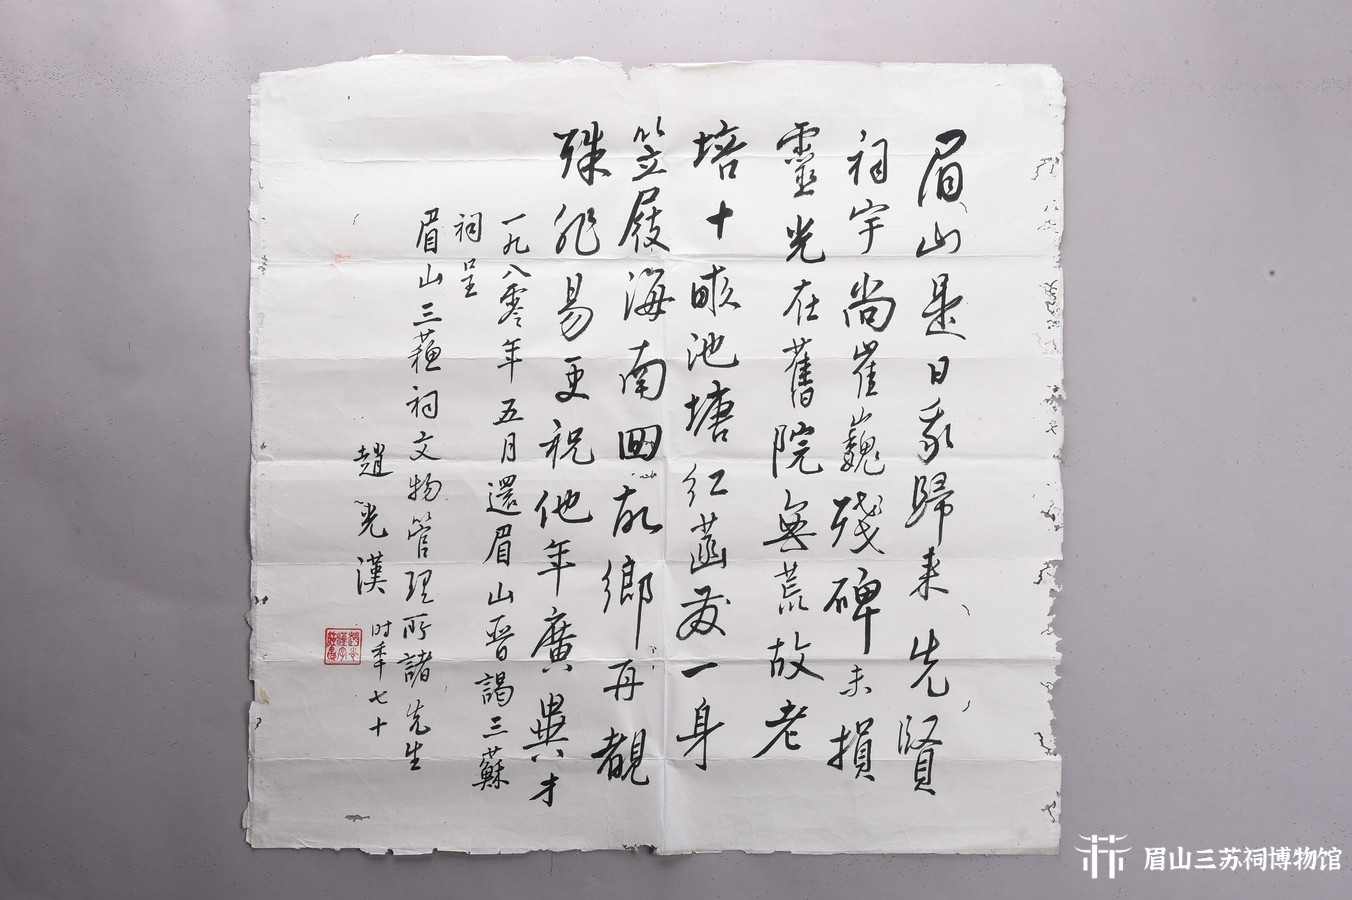 眉山是日我歸来先賢
祠宇尚崔巍殘碑未損
靈光在舊院無荒故老
培十畝池塘紅菡萏一身
笠屐海南回故鄉再覩
殊非易更祝他年廣異才
一九八零年五月還眉山晉謁三蘇
祠呈
眉山三蘓祠文物管理所諸先生
趙光漢
时年七十
眉山三苏祠博物馆